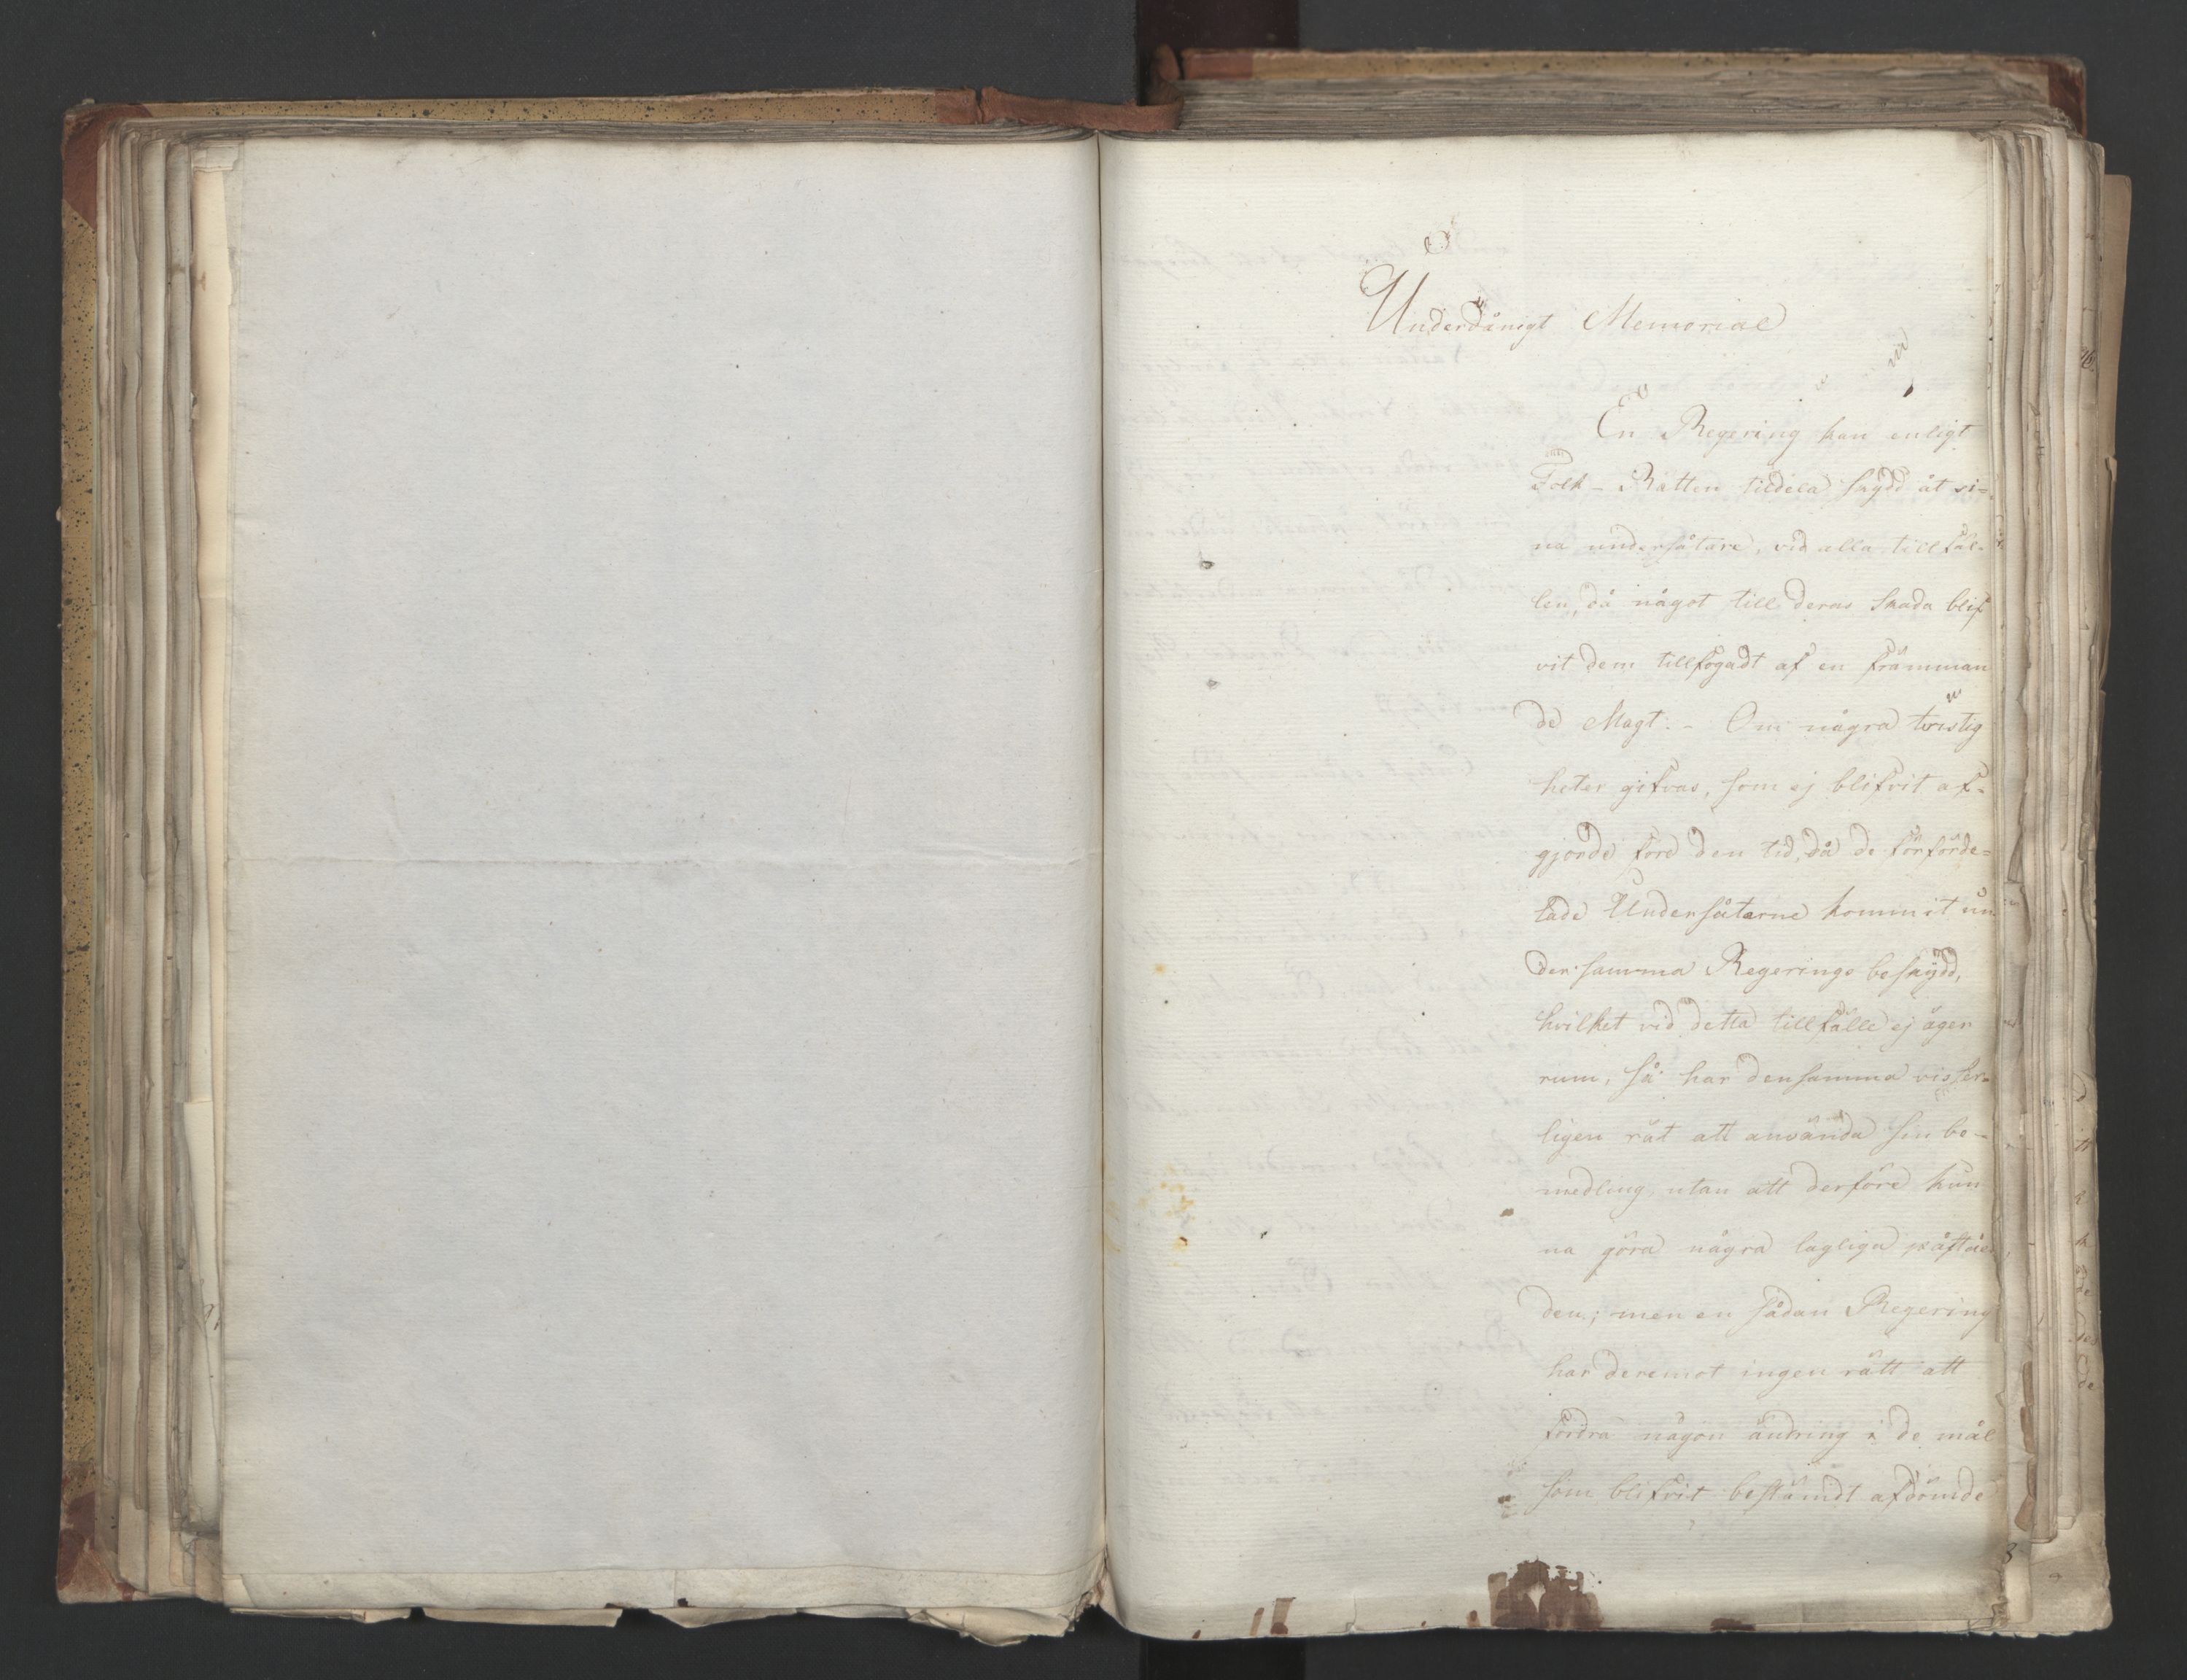 Underdånigt Memorial
En Regering kan enligt
Folk-Rätten tildela skydd åt si=
na undersåtare, vid alla tillfäl=
len, då något till deras skada blif
vit dem tillfogadt af en främman
de Magt. - Om några tvistig
heter gifvas, som ej blifvit af=
gjorde före den tid, då de förförde=
lade Undersåtarne kommit un
der samma Regerings beskydd,
hvilket vid detta tillfälle ej äger
rum, så har densamma visser=
ligen rät att använda sin be-
medling, utan att derföre kun
na göra några lagliga påståen
den; men en sådan Regering
har deremot ingen rätt att
fordra någon ändring i de mål
som blifvit bestämdt afdömde